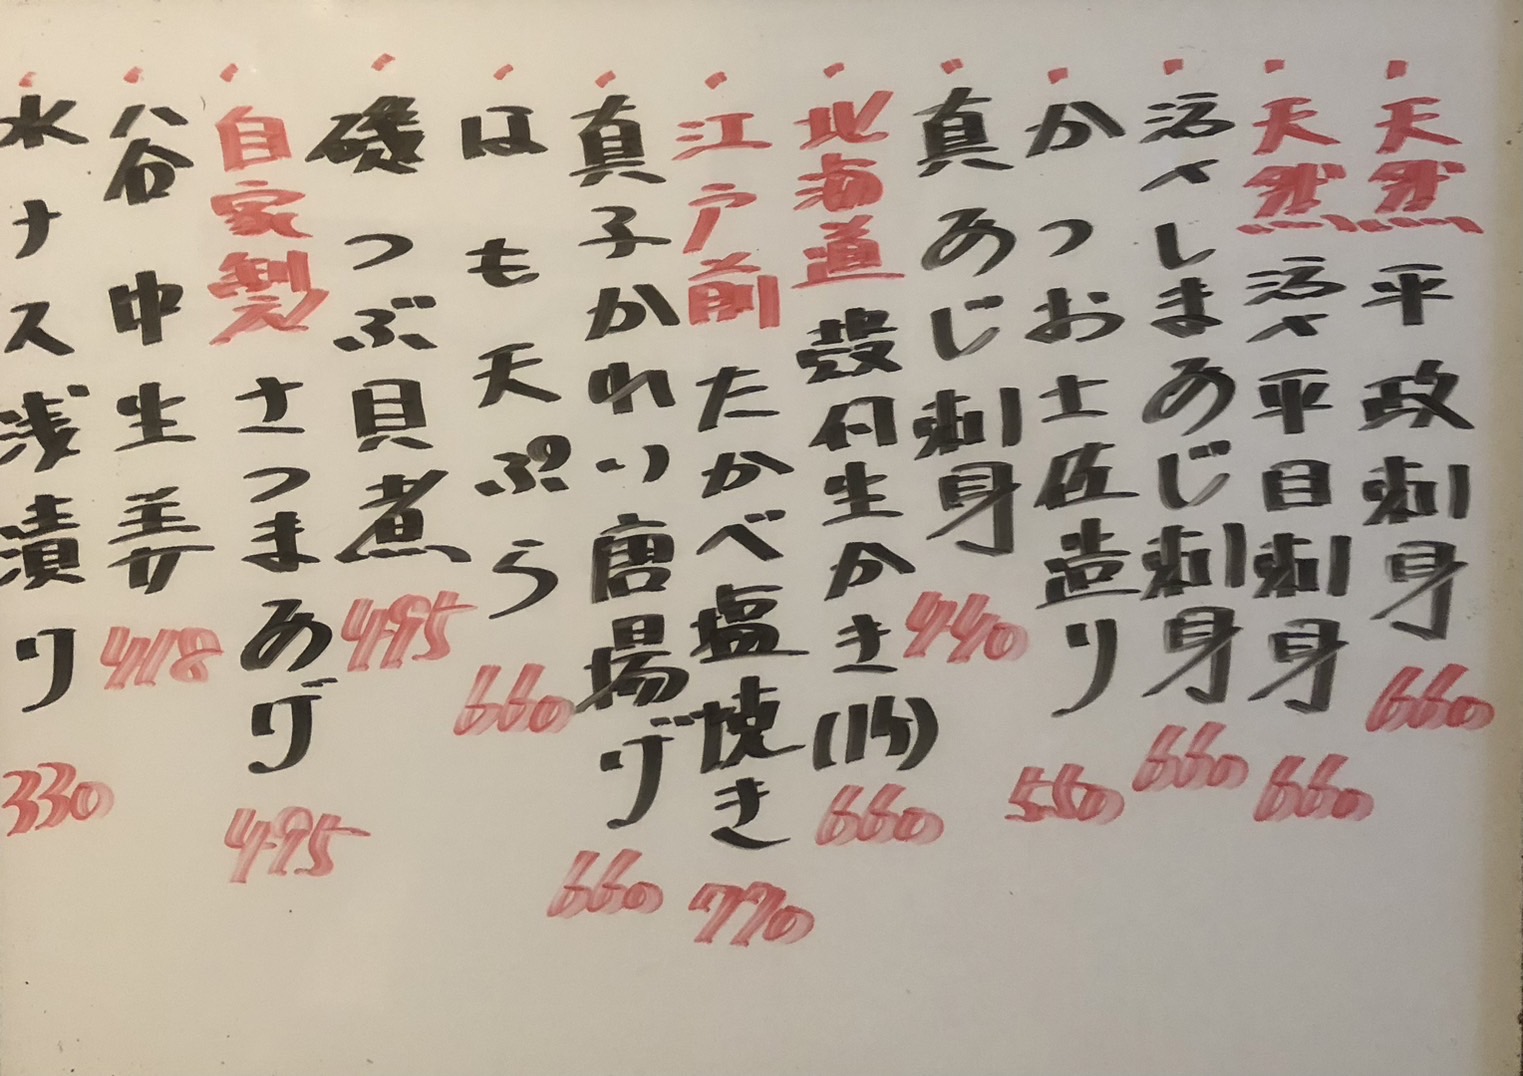 ・天然 平政刺身 660
・天然 活〆平目刺身 660
・活〆しまあじ刺身 660
・かつお土佐造り 550
・真あじ刺身 440
・北海道 殻付生かき(1ケ) 660
・江戸前 たかべ塩焼き 770
・真子かれい唐揚げ 660
・はも天ぷら 660
・磯つぶ貝煮 495
・自家製 さつまあげ 495
・谷中生姜 418
・水ナス浅漬り 330